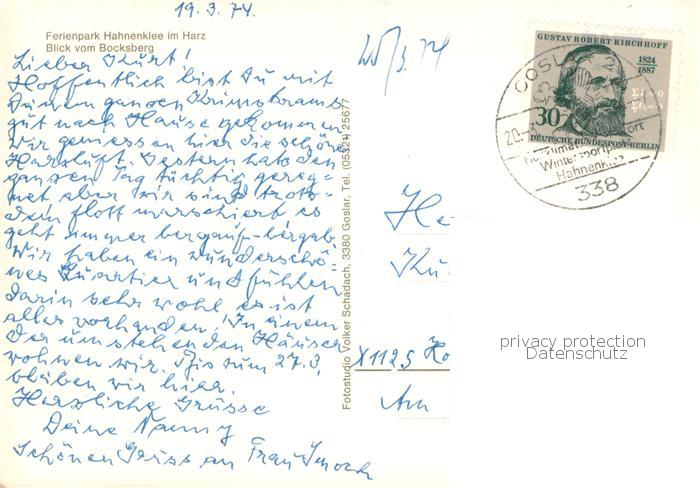 19.3.74.
Ferienpark Hahnenklee im Harz
Blick vom Bocksberg
Lieber Kurt!
Hoffentlich bist Du mit
Deinem ganzen Krimskrams
gut nach Hause gekommen
wir geniessen hier die schöne
Harzluft. Gestern hat es den
ganzen Tag tüchtig gereg-
net aber wir sind trotz-
dem flott marschiert es
geht immer bergauf-bergab.
Wir haben ein wunderschö-
nes Quartier und fühlen
darin sehr wohl, es ist
alles vorhanden. In einem
der umstehenden Häuser
wohnen wir. Bis zum 27.3.
bleiben wir hier.
Herzliche Grüsse
Deine Nanny
Schönen Gruss an Frau
Fotostudio Volker Schadach, 3380 Goslar, Tel. (05321) 25677
/3.74
GUSTAV ROBERT KIRCHHOFF
1824
1887
30
DEUTSCHE BUNDESPOST BERLIN
GOSLAR 2
20.
Wintersport
Hahnenklee
338
He
Ku
X1125 Ho
Am
privacy protection
Datenschutz